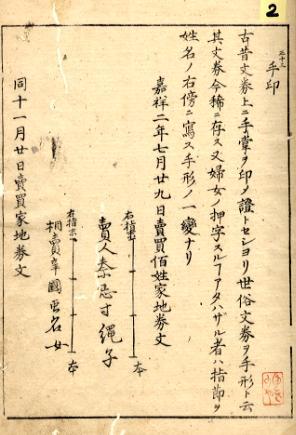 2
三十三
手印
古昔文券上ニ手掌ヲ印メ證トセシヨリ世俗文券ヲ手形ト云
其文券今稀ニ存ス又婦女ノ押字スルアタハザル者ハ指節ヲ
姓名ノ右傍ニ寫ス手形ノ一變ナリ
嘉祥二年七月廿九日賣買佰姓家地券文
右指 本
賣人秦忌寸縄子
右指 本
相賣 國 名女
同十一月廿日賣買家地券文